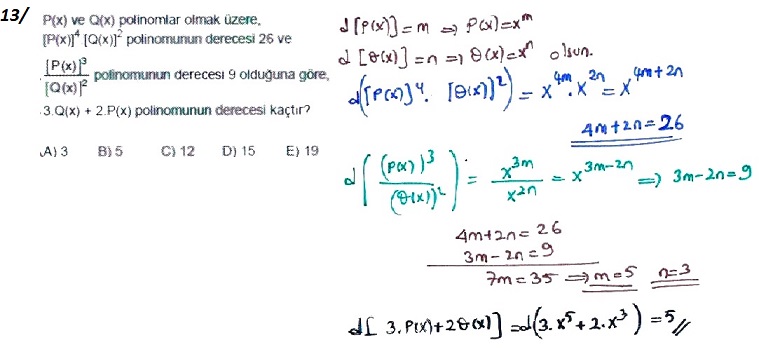 13/
P(x) ve Q(x) polinomlar olmak üzere,
[P(x)]⁴ [Q(x)]² polinomunun derecesi 26 ve
[P(x)]³ / [Q(x)]² polinomunun derecesi 9 olduğuna göre,
3.Q(x) + 2.P(x) polinomunun derecesi kaçtır?
A) 3 B) 5 C) 12 D) 15 E) 19
d[P(x)] = m ⇒ P(x)=x^m
d[Q(x)] = n ⇒ Q(x)=x^n olsun.
d([P(x)]⁴. [Q(x)]²) = x^4m . x^2n = x^4m+2n
4m+2n = 26
d((P(x))³ / (Q(x))²) = x^3m / x^2n = x^3m-2n ⇒ 3m-2n=9
4m+2n = 26
3m-2n = 9
7m = 35 ⇒ m=5 n=3
d[ 3.P(x)+2Q(x)] = d(3.x⁵+2.x³) = 5 //